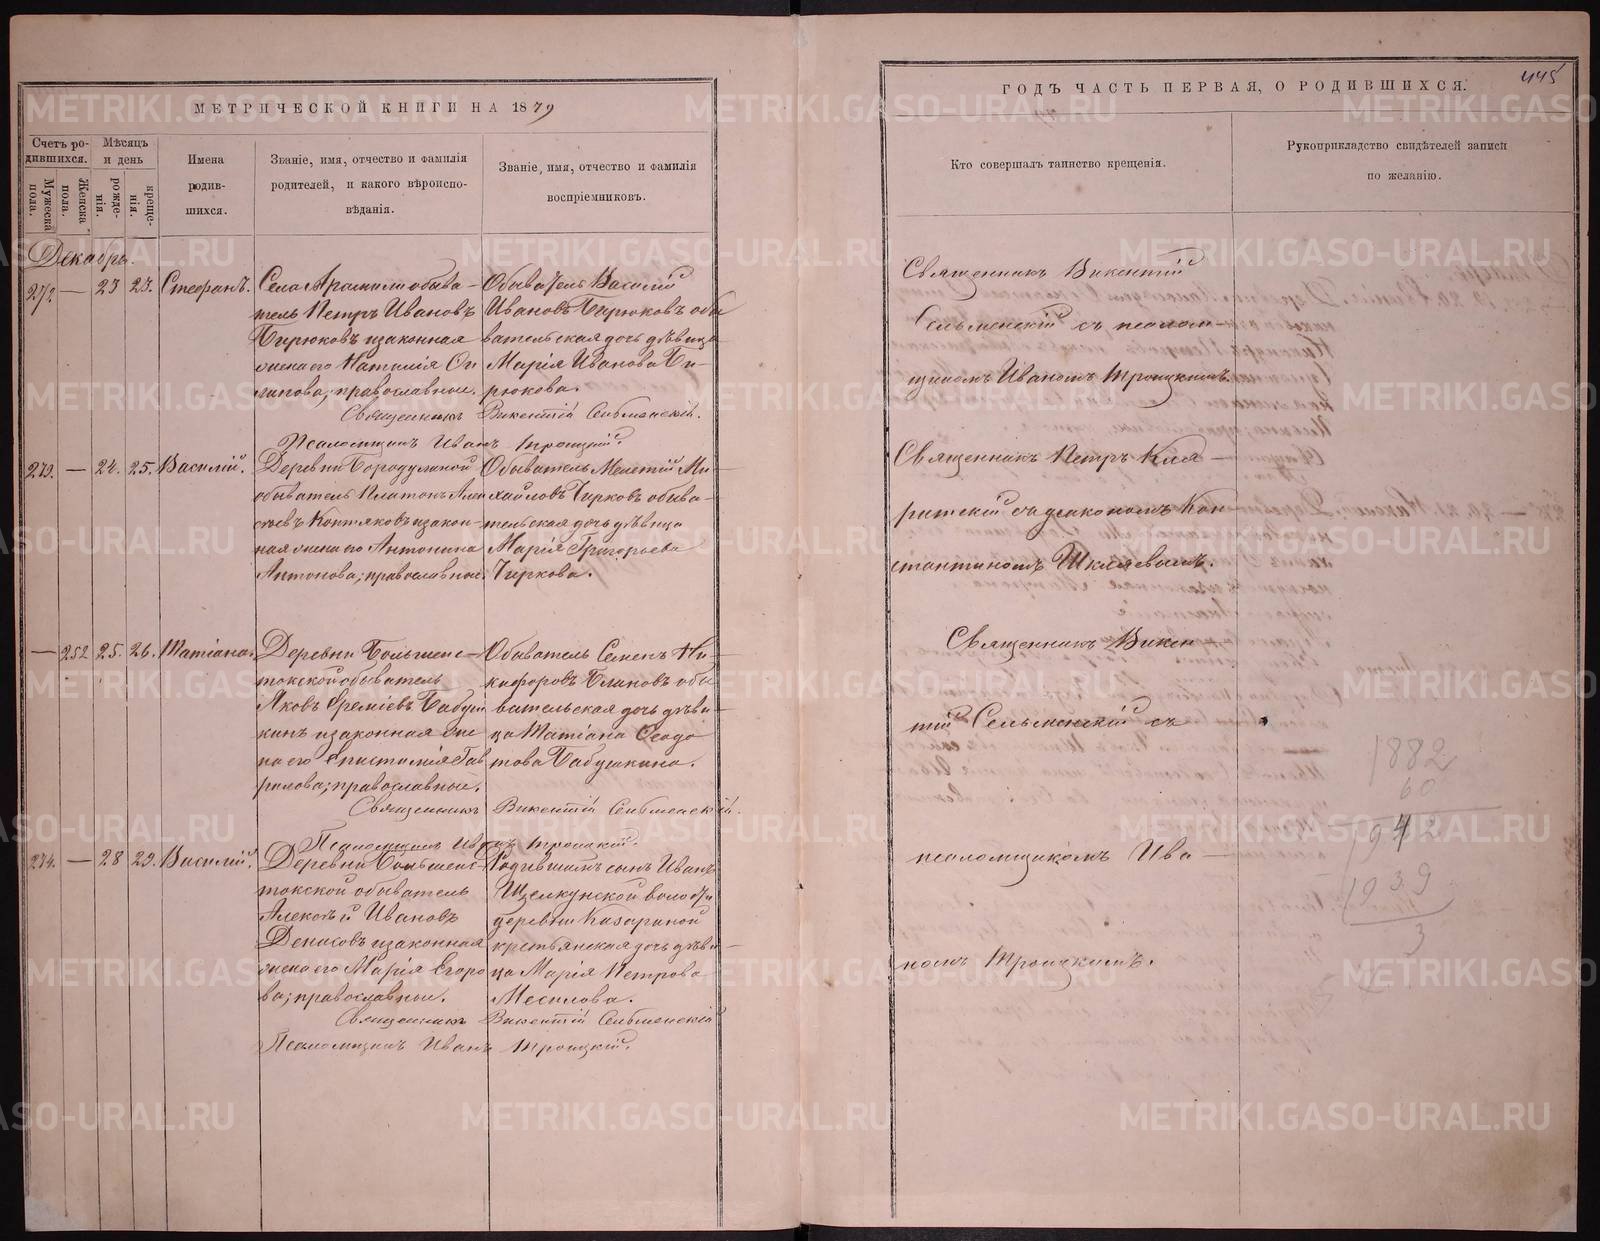 МЕТРИЧЕСКОЙ КНИГИ НА 1879
ГОДЪ ЧАСТЬ ПЕРВАЯ, О РОДИВШИХСЯ.
445
Счетъ ро-
дившихся.
Мужеска
пола.
Женска
пола.
Мѣсяцъ
и день
рожде-
нія.
креще-
нія.
Имена
родив-
шихся.
Званіе, имя, отчество и фамилія
родителей, и какого вѣроиспо-
вѣданія.
Званіе, имя, отчество и фамилія
воспріемниковъ.
Кто совершалъ таинство крещенія.
Рукоприкладство свидѣтелей записи
по желанію.
Декабрь.
272. — 23 23. Стефанъ.
Села Арамили обыва-
тель Петръ Ивановъ
Бирюковъ и законная
жена его Наталія
православные.
Обыватель Василій
Ивановъ Бирюковъ обы
вательская дочь дѣвица
Марія Иванова Би-
рюкова.
Священникъ Викентій Сельменскій.
Псаломщикъ Иванъ Троицкій.
Священникъ Викентій
Сельменскій съ псалом-
щикомъ Иваномъ Троицкимъ.
273. — 24. 25. Василій.
Деревни Бородулиной
обыватель Платонъ Алек
сѣевъ Контяковъ и закон-
ная жена его Антонина
Антонова; православные.
Обыватель Мелетій Ми-
хайловъ Чирковъ обыва-
тельская дочь дѣвица
Марія Григорьева
Чиркова.
Священникъ Петръ
съ діакономъ Кон
стантиномъ Шкляевымъ.
— 252 25. 26. Татіана.
Деревни Большеис-
токской обыватель
Яковъ Ереміевъ Бабуш
кинъ и законная же
на его Епистимія Гав
рилова; православные.
Обыватель Семенъ Ни-
кифоровъ Блиновъ обы
вательская дочь дѣви-
ца Татіана Ѳеодо
това Бабушкина.
Священникъ Викентій Сельменскій.
Псаломщикъ Иванъ Троицкій.
Священникъ Викен
тій Сельменскій съ
псаломщикомъ Ива-
номъ Троицкимъ.
274. — 28 29. Василій.
Деревни Большеис-
токской обыватель
Алексѣй Ивановъ
Денисовъ и законная
жена его Марія Егоро
ва; православные.
Родившимъ сынъ Иванъ
Щелкунской волости
деревни Казариной
крестьянская дочь дѣви-
ца Марія Петрова
Месилова.
Священникъ Викентій Сельменскій
Псаломщикъ Иванъ Троицкій.
1882
60
1942
1939
3
METRIKI.GASO-URAL.RU